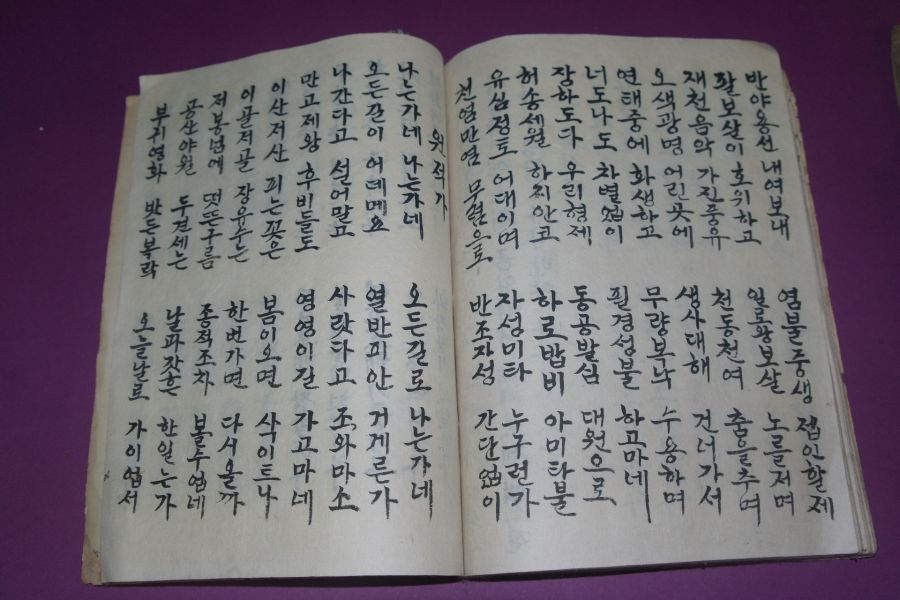 반야용선 내여보내 염불중생 접인할제
팔보살이 호위하고 일로왕보살 노를저며
재천음악 가진풍유 천동천여 춤을추며
오색광명 어린곳에 생사대해 건너가서
연태중에 화생하고 무량복낙 수용하며
너도나도 차별없이 필경성불 하고마네
장하도다 우리형제 동공발심 대원으로
허송세월 하지안고 하로밥비 아미타불
유심정토 어대이며 자성미타 누구런가
천염만염 무렴으로 반조자성 간단없이
원적가
나는가네 나는가네 오든길로 나는가네
오든길이 어데메요 열반피안 거게른가
나간다고 설어말고 사랏다고 조와마소
만고제왕 후비들도 영영이길 가고마네
이산저산 피는꽃은 봄이오면 삭이트나
이골저골 장유수는 한번가면 다시올까
저봉넘에 떳뚜구름 종적조차 볼수없네
공산야월 두견세는 날과갓흔 한일는가
부귀영화 밧든복락 오늘날로 가이없서